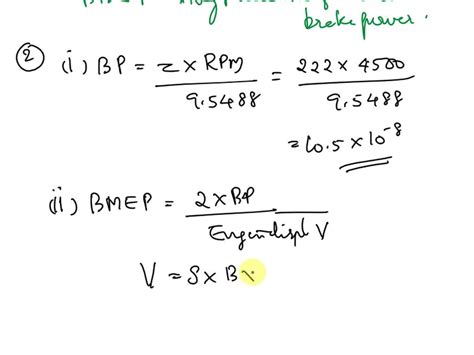 brake power.
② (i) BP = z × RPM / 9.5488 = 222 × 4500 / 9.5488
= 10.5 × 10⁻⁸
(ii) BMEP = 2 × BP / V
V = S × B